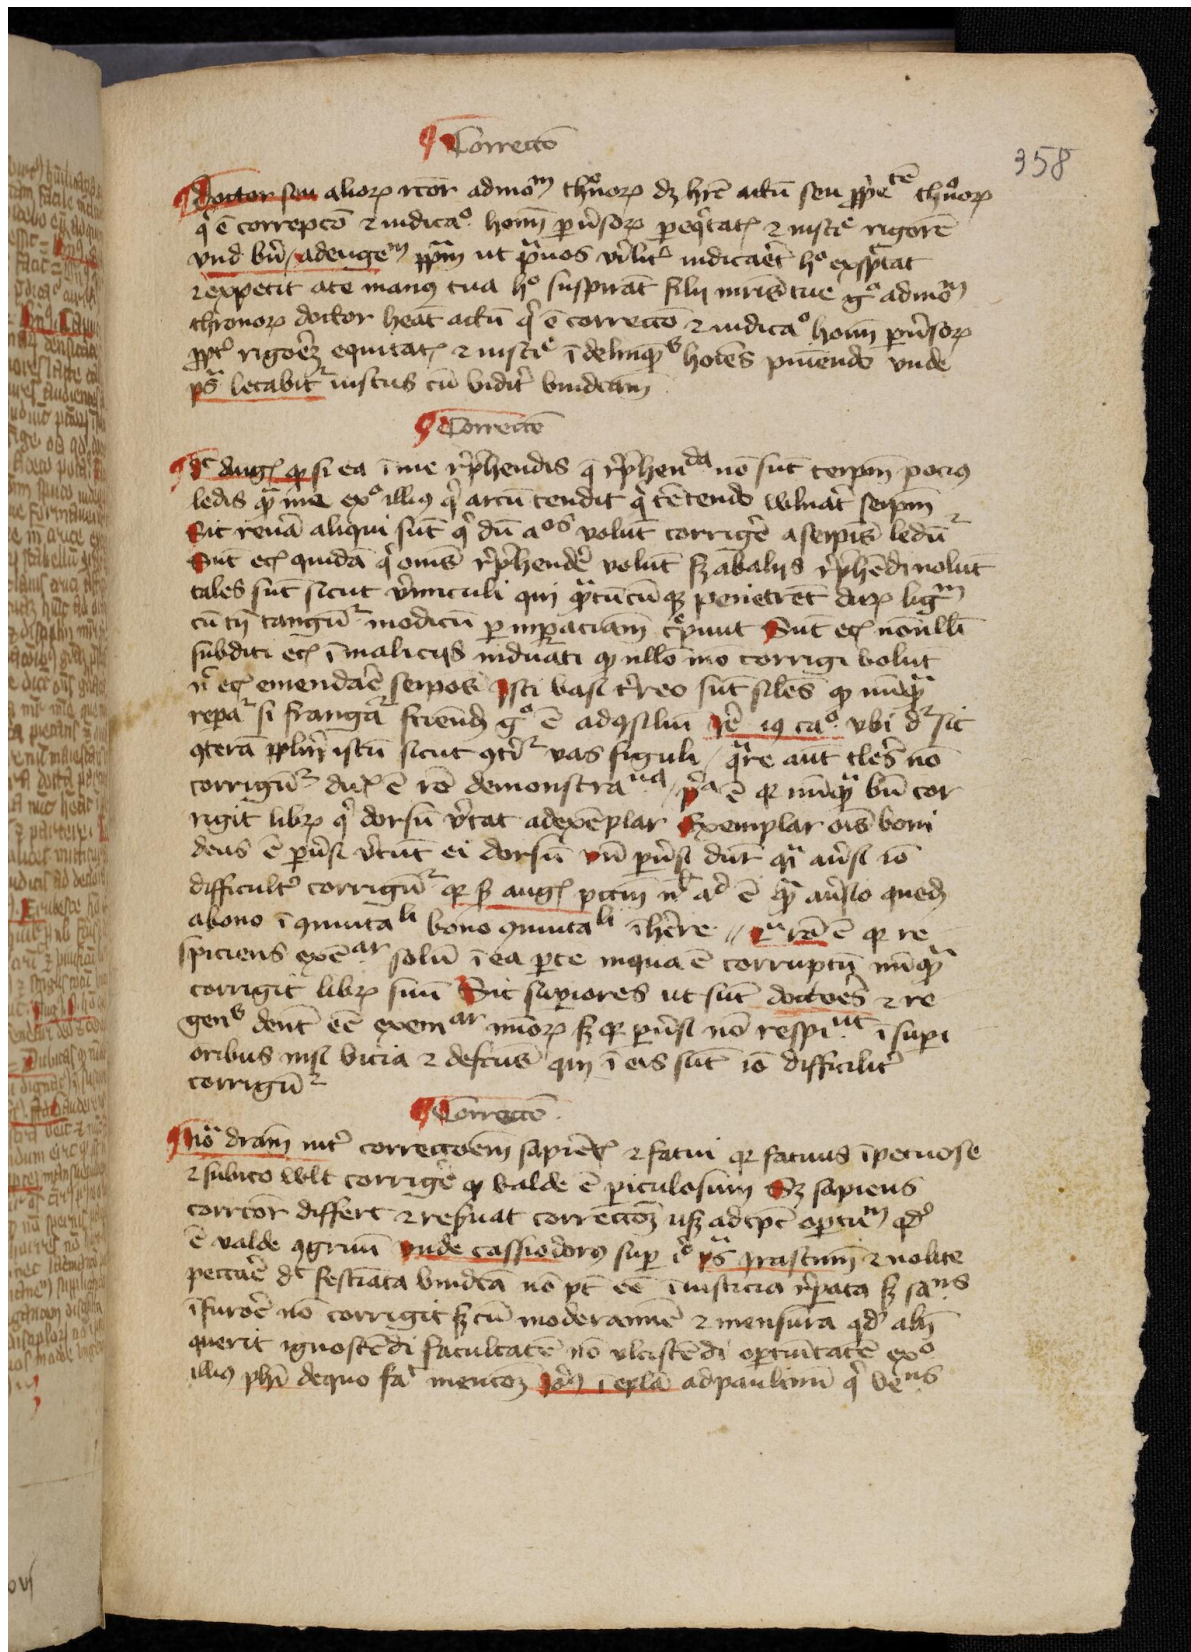 Correctō
358
Doctor seu alioꝝ rcōr admōm thꝰnoꝝ dꝫ hr̄e actū seu ꝓp̄etē thꝰnoꝝ
q̇ ē correpcō ⁊ iudicaᵒ hoīm ꝑūsoꝝ ꝑeq̇tatꝭ ⁊ iusticᵉ rigorē
vnd bn̄
⁊ expetit a te manꝰ tua hᵒ suspirāt filij mr̄is tue gᵒ admōm
thronoꝝ doctor heāt actū q̇ ē correctō ⁊ iudicaᵒ hoīm ꝑūsoꝝ
ꝓptᵉ rigorēꝫ equitatꝭ ⁊ iusticᵉ ī delinq̄ hoīēs puniendo vnde
pˢ letabitᵣ iustus cū vidit vindcām
Correctō
dᶜ Augꝰ ꝙ si ea ī me rp̄hendis q̄ rp̄henda nō sūt teip̄m pociꝰ
ledis q̄ me exᵒ illiꝰ q̇ arcū tendit q̇ tētendo wlnat seip̄m
Sic reuā aliqui sūt q̇ dū aᵒˢ volūt corrigē a seip̄is ledūᵣ
Sūt ecꝭ quidā q̇ om̄s rp̄hendē volūt sꝫ ab alijs rp̄hēdi nolūt
tales sūt sicut v̄miculi qui q̄tūcūqꝫ penetrēt duꝝ ligᵐ
cū tn̄ tangūᵣ modicū ꝑ inpaciam cᵉpāut Sūt ecꝭ nōnull̄i
subditi ecꝭ ī malicijs indurati ꝙ nllo mō corrigi volūt
n̄ ecꝭ emendarē seipos Isti vasi tr̄eo sūt sil̄es ꝙ nūqᵃ
repaᵣ si frangāᵣ sciend gᵒ ē ad ꝯsiliū Ierē 19 caᵒ vbi dᵣ sic
ꝯterā pplm̄ istū sicut ꝯtiᵣ vas figuli qᵃre aūt tales nō
corrigūᵣ duꝝ ē rō demonstraᵘᵃ pᵃ ē ꝙ nūqᵃ bn̄ cor
rigit libꝝ q̇ dorsū v̄tat ad exēplar Exemplar oīs boni
deus ē ꝑūsi v̄tūt ei dorsū vn̄ ꝑūsi dūt qᵃ aūsi iō
difficultᵉ corrigūᵣ ꝙ sꝫ augꝰ pctm̄ n̄ aᵈ ē qᵃ aūsio quedā
a bono īꝯmutaˡⁱ bono ꝯmutaˡⁱ īher̄e 2ᵃ rō ē ꝙ re
spiciens exēᵃʳ solū ī ea ꝑte in qua ē corruptū nūqᵃ
corrigit libꝝ suū Sic suꝑiores ut sūt doctoēs ⁊ re
genᵗˢ dent eē exemᵃʳ mīoꝝ sꝫ ꝙ ꝑūsi nō respiᵘᵗ ī supi
oribus nisi vicia ⁊ defctus qui ī eis sūt iō difficilitᵉ
corrigūᵣ
Correctō
Nō dr̄am intᵉ correctōem sapiētꝭ ⁊ fatui ꝙ fatuus īpetuose
⁊ subito wlt corrigē ꝙ valde ē ꝑiculosum Sꝫ sapiens
corrcōr differt ⁊ res̄uat correctōꝫ usqꝫ ad tp̄s optuᵐ qdᵒ
ē valde ꝯgruū vnde cassiodorꝰ suꝑ pˢ Irascimī ⁊ nolite
peccarē dᶜ festīata vindcā nō pt eē ī iusticia rp̄ata sꝫ saⁿˢ
ī furorē nō corrigit sꝫ cū moderamīe ⁊ mensura qdᵒ aliī
querit ignoscēdi facultatē nō vlciscēdi optuītatē exᵒ
illiꝰ phī de quo faᵗ mencoꝫ Ierōꝰ ī ep̄la ad paulinū q̇ veⁿˢ